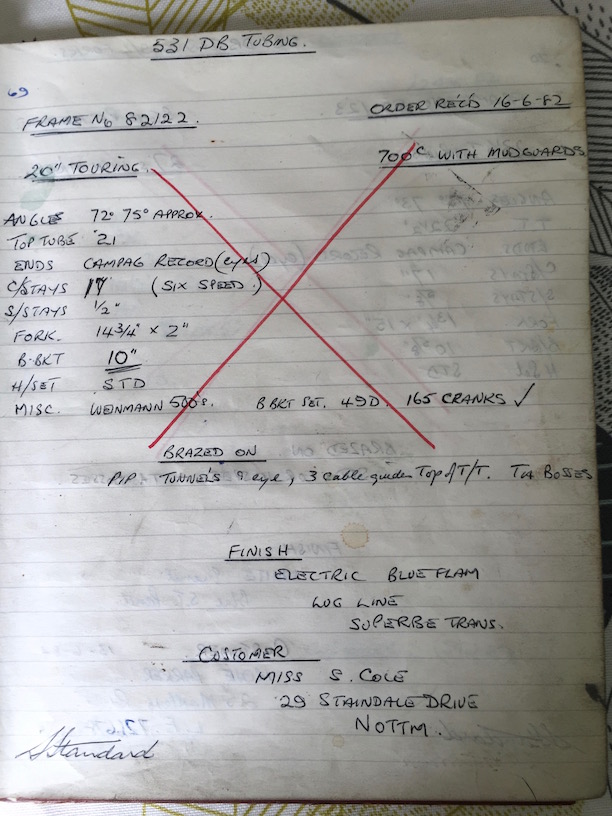 531 DB TUBING.
69
FRAME No 82122. ORDER REC'D 16-6-82
20" TOURING. 700c WITH MUDGUARDS
ANGLES 72° 75° APPROX.
TOP TUBE 21
ENDS CAMPAG RECORD (eyes)
C/STAYS 17 (SIX SPEED.)
S/STAYS 1/2"
FORK. 14 3/4" × 2"
B-BKT 10"
H/SET STD
MISC. WEINMANN 500's. B BKT SET. 49D. 165 CRANKS ✓
BRAZED ON
PIP TUNNELS eye, 3 cable guides Top of T/T. TA BOSSES
FINISH
ELECTRIC BLUE FLAM
LUG LINE
SUPERBE TRANS.
CUSTOMER
MISS S. COLE
29 STAINDALE DRIVE
NOTTM.
Standard